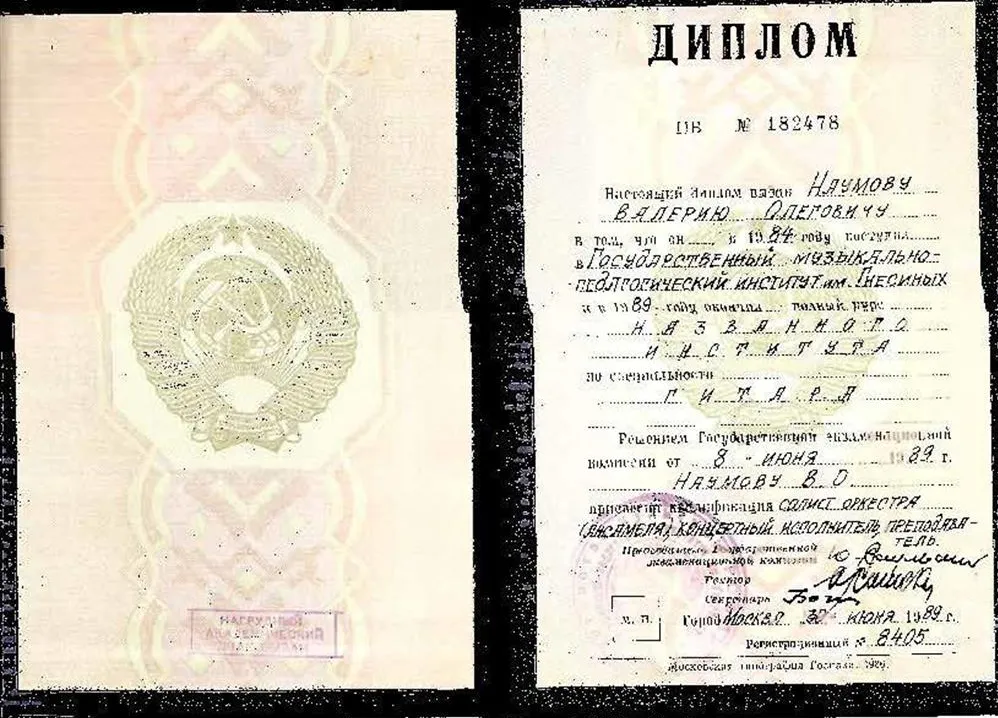 НАГРУДНЫЙ
АКАДЕМИЧЕСКИЙ
ДИПЛОМ
№ 182478
Настоящий диплом выдан НАУМОВУ
ВАЛЕРИЮ ОЛЕГОВИЧУ
в том, что он в 1984 году поступил
в ГОСУДАРСТВЕННЫЙ МУЗЫКАЛЬНО-
ПЕДАГОГИЧЕСКИЙ ИНСТИТУТ им. ГНЕСИНЫХ
и в 1989 году окончил полный курс
НАЗВАННОГО
ИНСТИТУТА
по специальности
ГИТАРА
Решением Государственной экзаменационной
комиссии от 8 - ИЮНЯ 1989 г.
НАУМОВУ В О
присвоена квалификация СОЛИСТ ОРКЕСТРА
(АНСАМБЛЯ), КОНЦЕРТНЫЙ ИСПОЛНИТЕЛЬ, ПРЕПОДАВА-
ТЕЛЬ.
Председатель Государственной
экзаменационной комиссии
Ректор
Секретарь
М. П. Город Москва ИЮНЯ 1989 г.
Регистрационный № 8405
Московская типография Гознака.